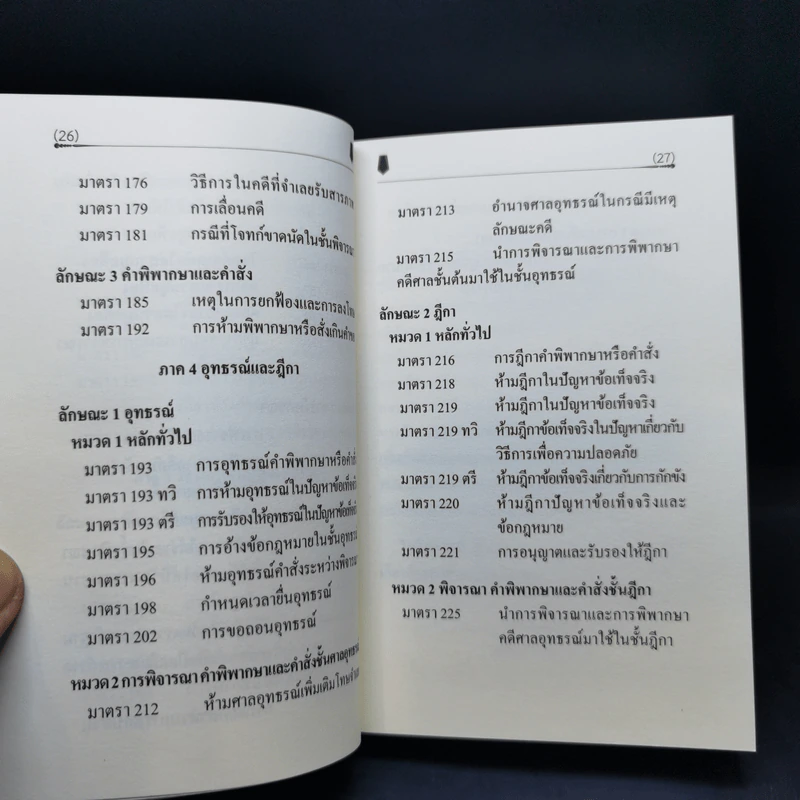 (26)
มาตรา 176 วิธีการในคดีที่จำเลยรับสารภาพ
มาตรา 179 การเลื่อนคดี
มาตรา 181 กรณีที่โจทก์ขาดนัดในชั้นพิจารณา
ลักษณะ 3 คำพิพากษาและคำสั่ง
มาตรา 185 เหตุในการยกฟ้องและการลงโทษ
มาตรา 192 การห้ามพิพากษาหรือสั่งเกินคำขอ
ภาค 4 อุทธรณ์และฎีกา
ลักษณะ 1 อุทธรณ์
หมวด 1 หลักทั่วไป
มาตรา 193 การอุทธรณ์คำพิพากษาหรือ
มาตรา 193 ทวิ การห้ามอุทธรณ์ในปัญหาข้อเท็จจริง
มาตรา 193 ตรี การรับรองให้อุทธรณ์ในปัญหาข้อเท็จจริง
มาตรา 195 การอ้างข้อกฎหมายในชั้นอุทธรณ์
มาตรา 196 ห้ามอุทธรณ์คำสั่งระหว่างพิจารณา
มาตรา 198 กำหนดเวลายื่นอุทธรณ์
มาตรา 202 การขอถอนอุทธรณ์
หมวด 2 การพิจารณา คำพิพากษาและคำสั่งชั้นศาลอุทธรณ์
มาตรา 212 ห้ามศาลอุทธรณ์เพิ่มเติมโทษ
(27)
มาตรา 213 อำนาจศาลอุทธรณ์ในกรณีมีเหตุ
ลักษณะคดี
มาตรา 215 นำการพิจารณาและการพิพากษา
คดีศาลชั้นต้นมาใช้ในชั้นอุทธรณ์
ลักษณะ 2 ฎีกา
หมวด 1 หลักทั่วไป
มาตรา 216 การฎีกาคำพิพากษาหรือคำสั่ง
มาตรา 218 ห้ามฎีกาในปัญหาข้อเท็จจริง
มาตรา 219 ห้ามฎีกาในปัญหาข้อเท็จจริง
มาตรา 219 ทวิ ห้ามฎีกาข้อเท็จจริงในปัญหาเกี่ยวกับ
วิธีการเพื่อความปลอดภัย
มาตรา 219 ตรี ห้ามฎีกาข้อเท็จจริงเกี่ยวกับการกักขัง
มาตรา 220 ห้ามฎีกาปัญหาข้อเท็จจริงและ
ข้อกฎหมาย
มาตรา 221 การอนุญาตและรับรองให้ฎีกา
หมวด 2 พิจารณา คำพิพากษาและคำสั่งชั้นฎีกา
มาตรา 225 นำการพิจารณาและการพิพากษา
คดีศาลอุทธรณ์มาใช้ในชั้นฎีกา